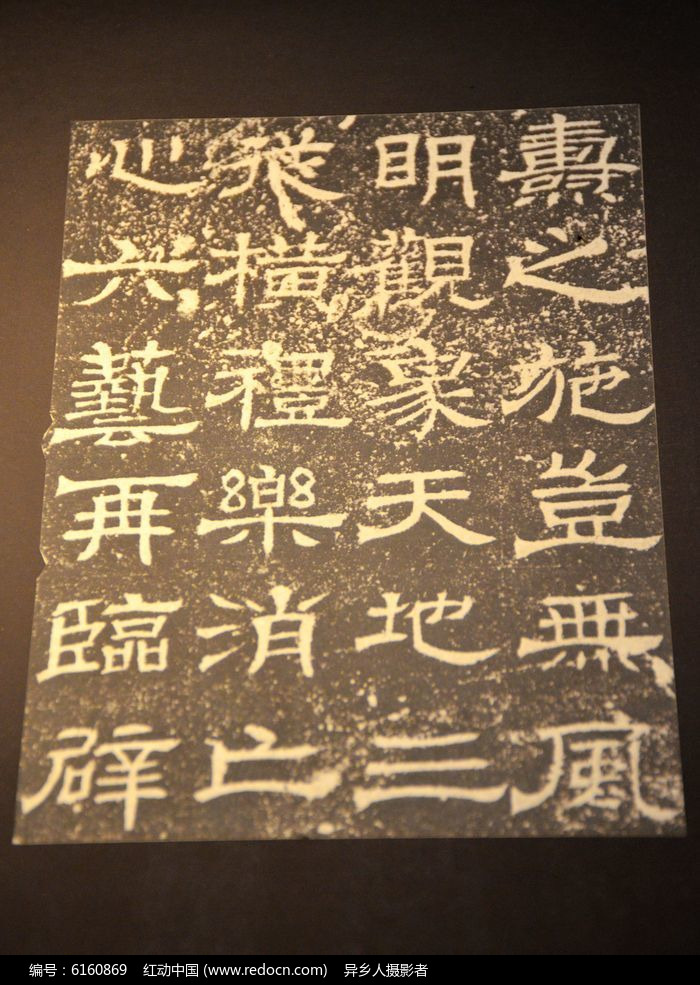 燾之施豈無風
明觀象天地三
從橫禮樂消亡
心六藝再臨辟
编号：6160869 红动中国 (www.redocn.com) 异乡人摄影者